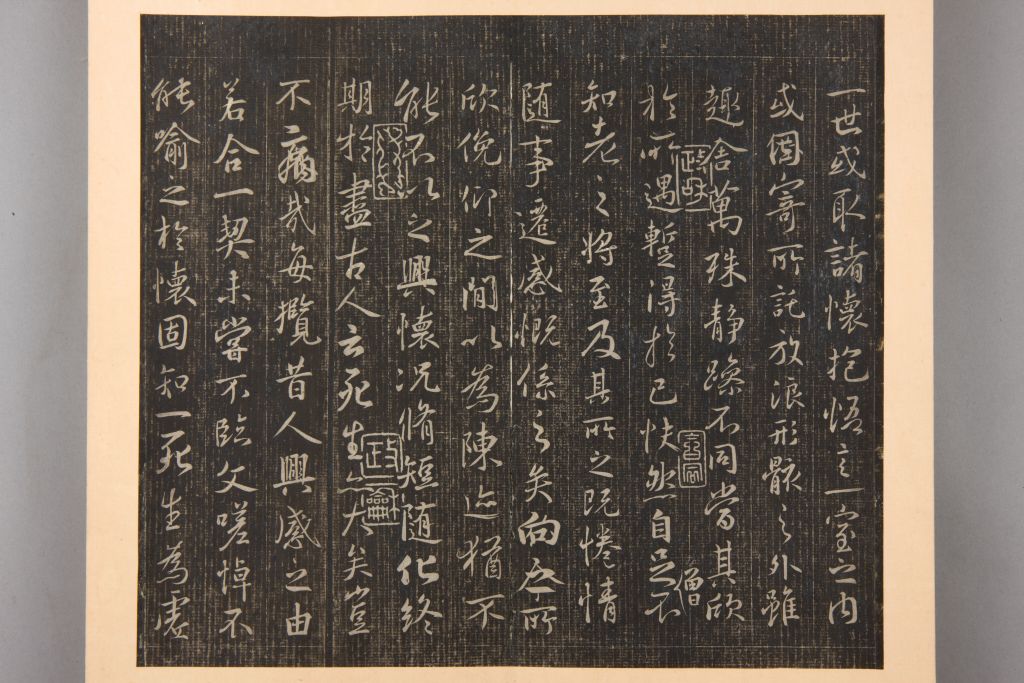 一世或取諸懷抱悟言一室之内
或因寄所託放浪形骸之外雖
趣舍萬殊静躁不同當其欣
於所遇蹔得於己怏然自足不
僧
知老之將至及其所之既惓情
随事遷感慨係之矣向之所
欣俛仰之閒以為陳迹猶不
能不以之興懷況脩短随化終
期於盡古人云死生亦大矣豈
政龢
不痛哉每攬昔人興感之由
若合一契未嘗不臨文嗟悼不
能喻之於懷固知一死生為虛